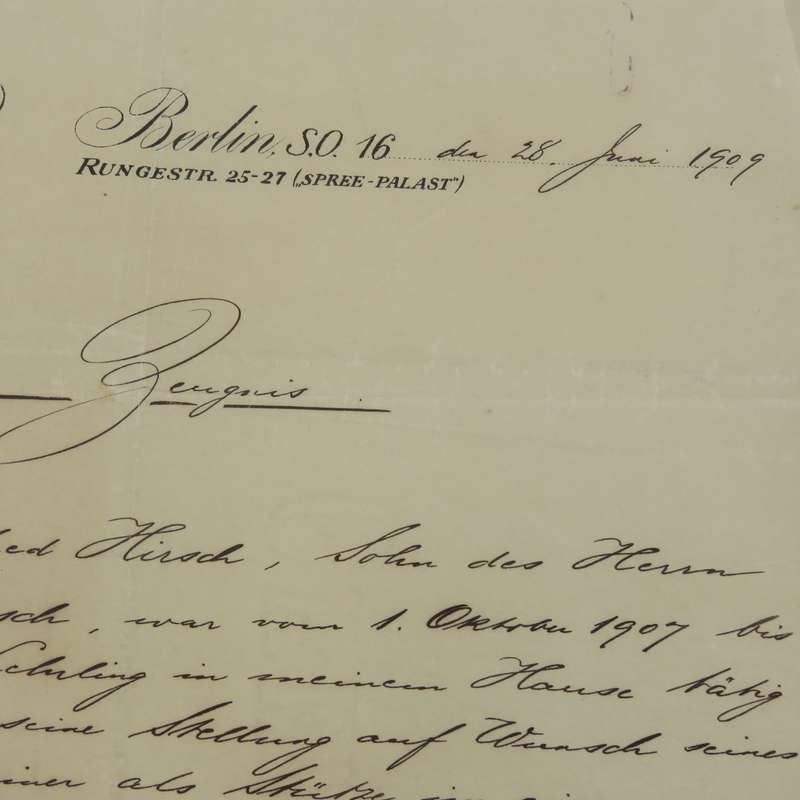 Berlin, S.O. 16 den 28. Juni 1909
RUNGESTR. 25-27 („SPREE-PALAST")
Zeugnis
Hirsch, Sohn des Herrn
war vom 1. Oktober 1907 bis
Lehrling in meinem Hause tätig
seine Stellung auf Wunsch seines
als Stütze